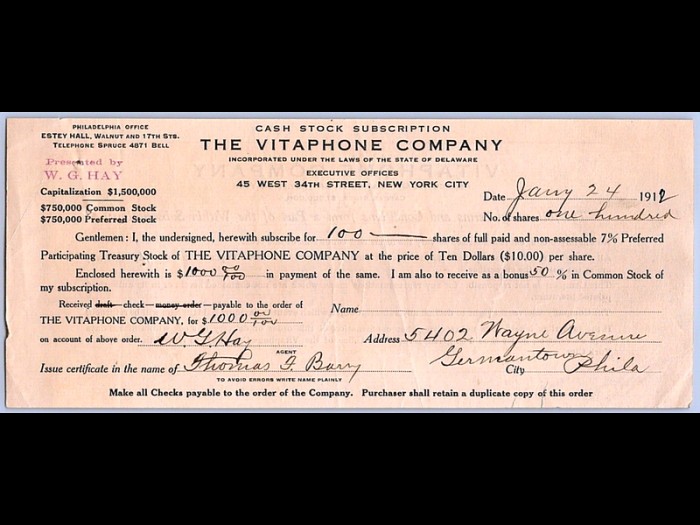 PHILADELPHIA OFFICE
ESTEY HALL, WALNUT AND 17TH STS.
TELEPHONE SPRUCE 4871 BELL
Presented by
W. G. HAY
Capitalization $1,500,000
$750,000 Common Stock
$750,000 Preferred Stock
CASH STOCK SUBSCRIPTION
THE VITAPHONE COMPANY
INCORPORATED UNDER THE LAWS OF THE STATE OF DELAWARE
EXECUTIVE OFFICES
45 WEST 34TH STREET, NEW YORK CITY
Date Jany 24 1912
No. of shares one hundred
Gentlemen: I, the undersigned, herewith subscribe for 100 — shares of full paid and non-assessable 7% Preferred
Participating Treasury Stock of THE VITAPHONE COMPANY at the price of Ten Dollars ($10.00) per share.
Enclosed herewith is $1000 00/100 in payment of the same. I am also to receive as a bonus 50 % in Common Stock of
my subscription.
Received draft—check—money order—payable to the order of
THE VITAPHONE COMPANY, for $1000 00/100
on account of above order. W. G. Hay
AGENT
Issue certificate in the name of Thomas F. Barry
TO AVOID ERRORS WRITE NAME PLAINLY
Name
Address 5402 Wayne Avenue
Germantown Phila
City
Make all Checks payable to the order of the Company. Purchaser shall retain a duplicate copy of this order